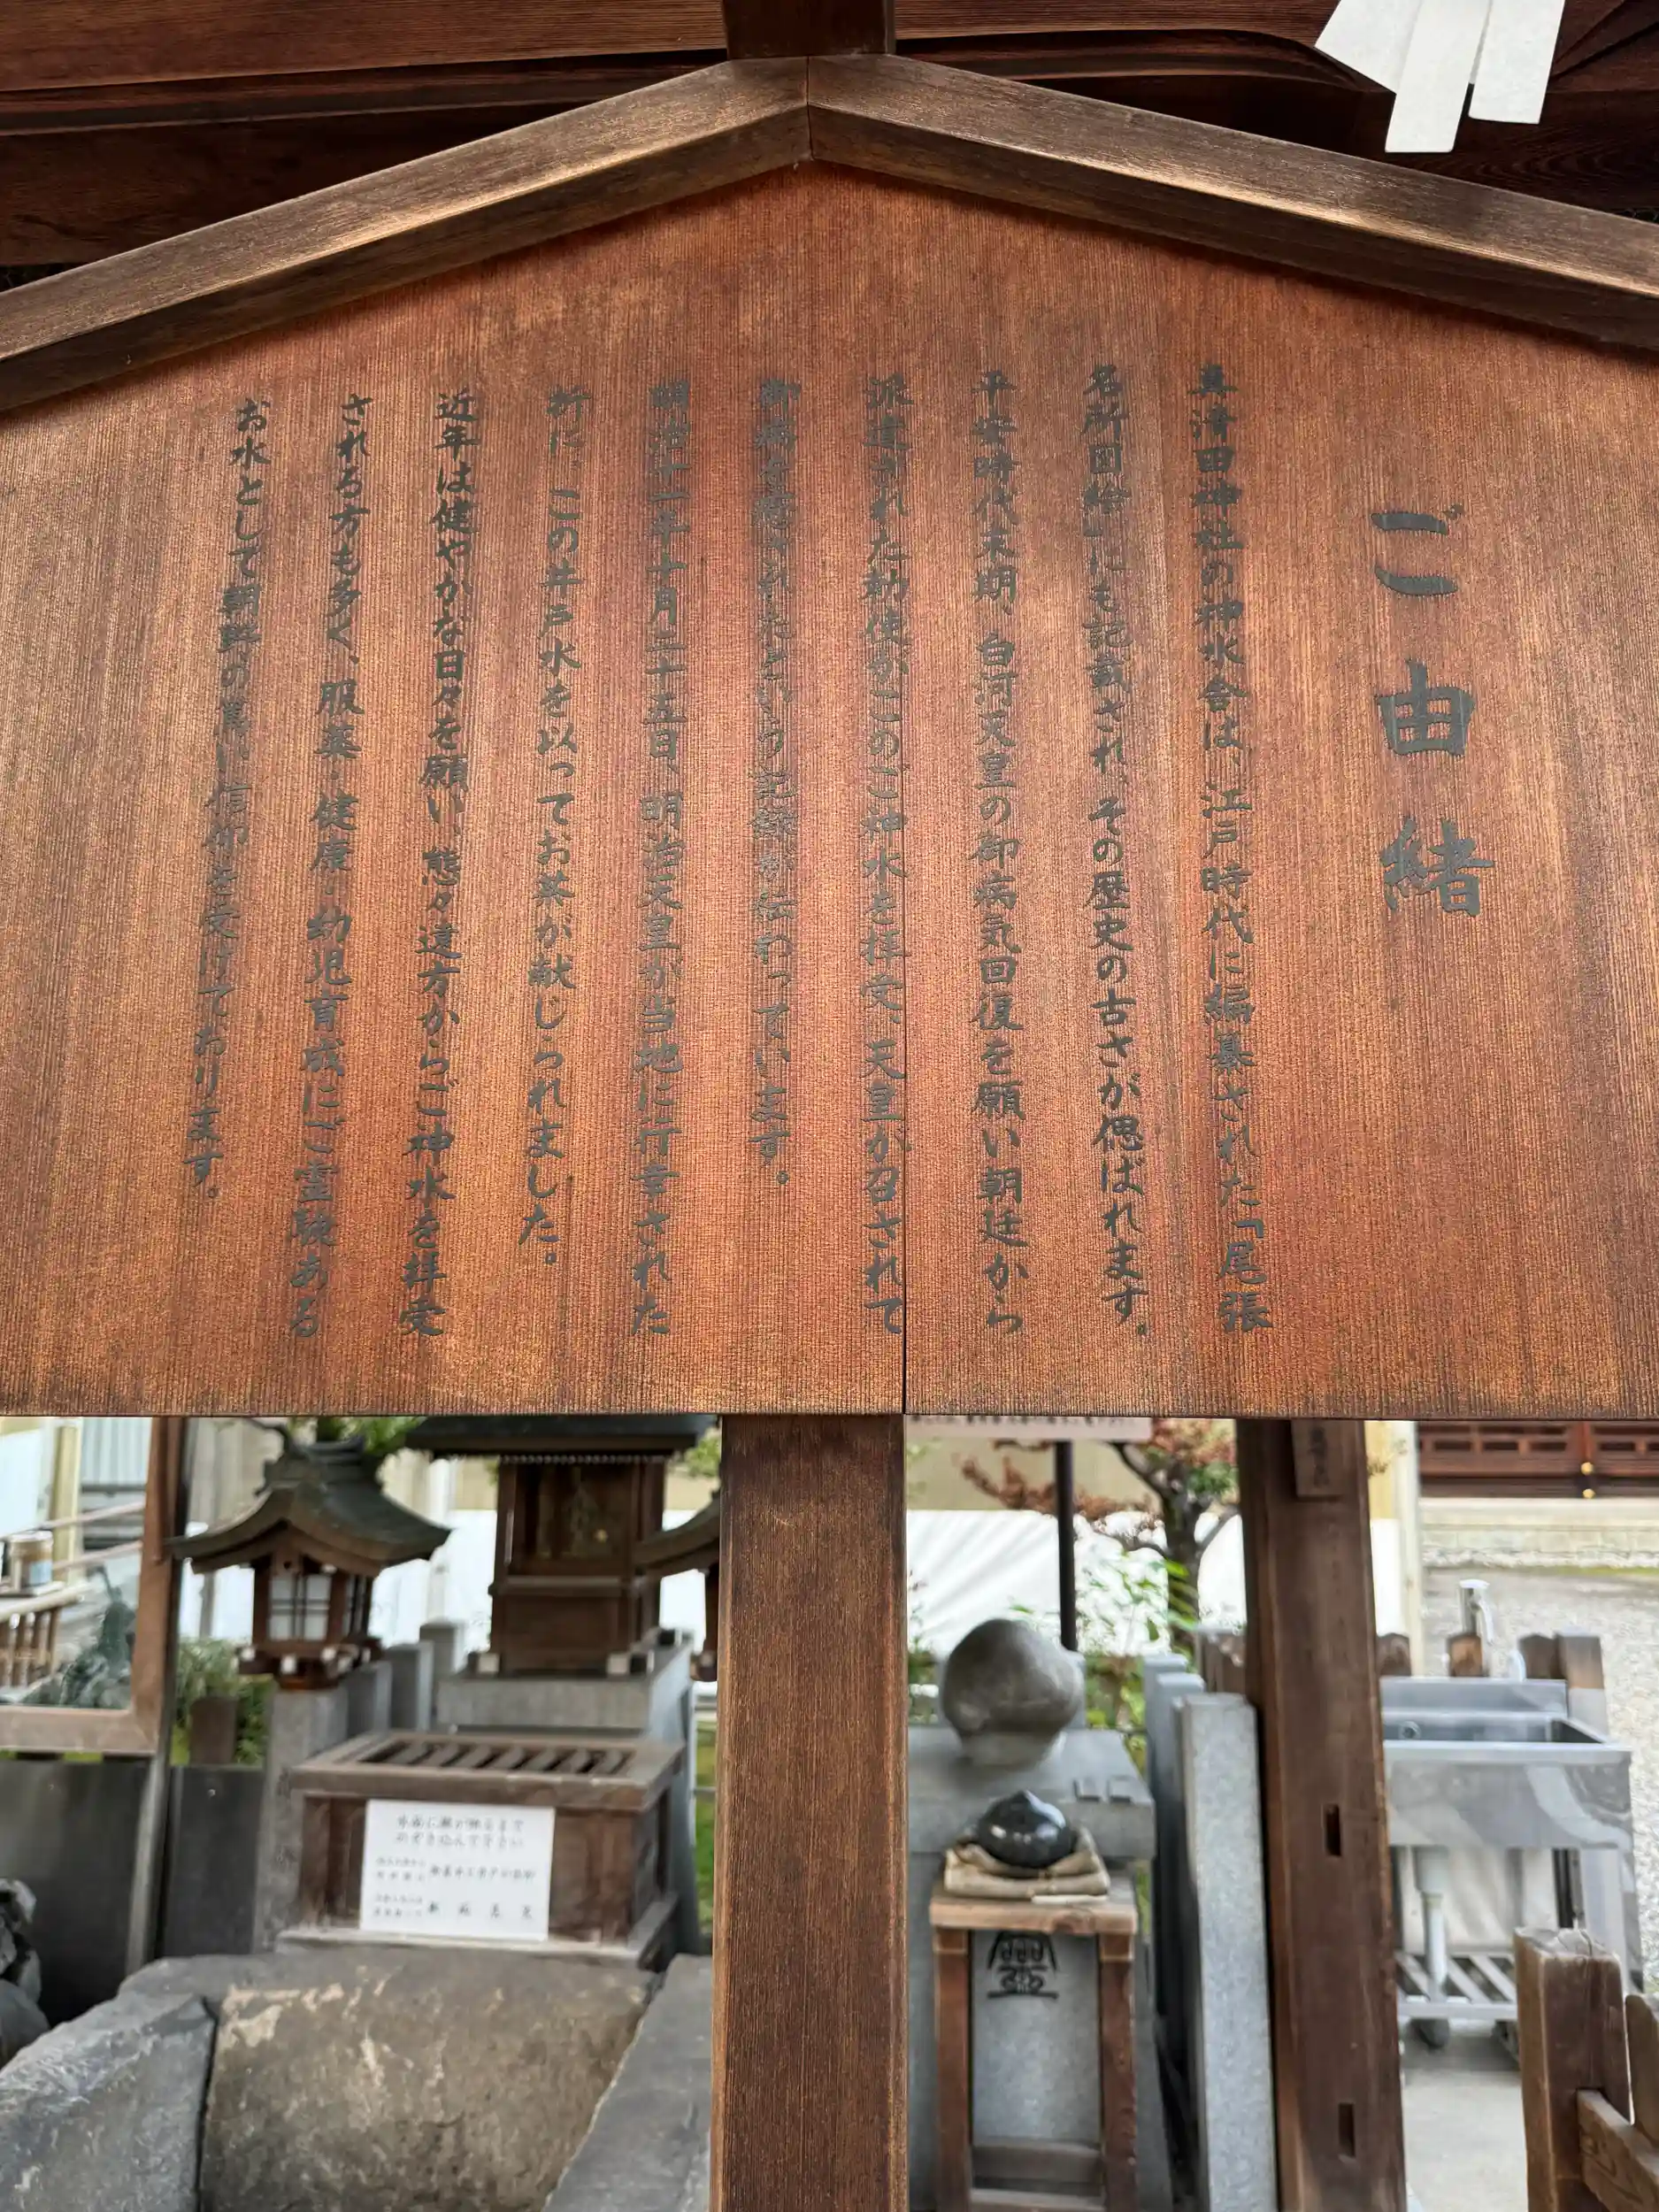 ご由緒
真清田神社の神水舎は、江戸時代に編纂された「尾張
名所図絵」にも記載され、その歴史の古さが偲ばれます。
平安時代末期、白河天皇の御病気回復を願い朝廷から
派遣された勅使がこのご神水を拝受、天皇が召されて
御病を癒されたという記録が伝わっています。
明治十一年十月二十五日、明治天皇が当地に行幸された
折に、この井戸水を以ってお茶が献じられました。
近年は健やかな日々を願い、態々遠方からご神水を拝受
される方も多く、服薬・健康・幼児育成にご霊験ある
お水として朝野の篤い信仰を受けております。
水面に顔が映るまで
のぞき込んで下さい
霊